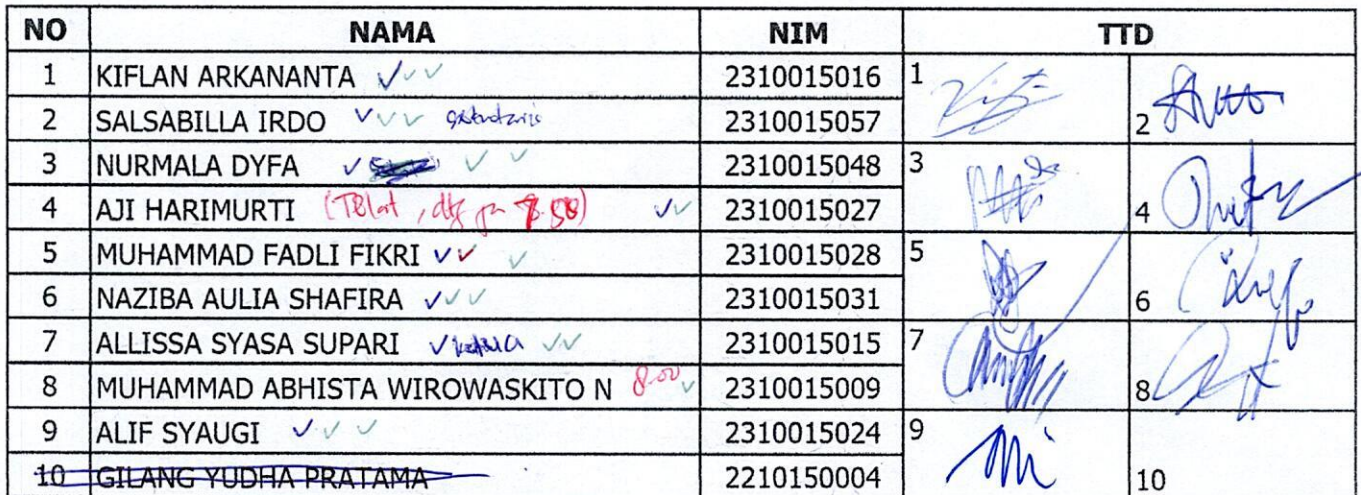 NO NAMA NIM TTD
1 KIFLAN ARKANANTA ✓✓✓ 2310015016 1
2 SALSABILLA IRDO ✓✓✓ 2310015057 2
3 NURMALA DYFA ✓ ✓ ✓ 2310015048 3
4 AJI HARIMURTI (Telat, ✓✓ 2310015027 4
5 MUHAMMAD FADLI FIKRI ✓✓ ✓ 2310015028 5
6 NAZIBA AULIA SHAFIRA ✓✓✓ 2310015031 6
7 ALLISSA SYASA SUPARI ✓ ketua ✓✓ 2310015015 7
8 MUHAMMAD ABHISTA WIROWASKITO N 8.00 ✓ 2310015009 8
9 ALIF SYAUGI ✓✓ ✓ 2310015024 9
10 GILANG YUDHA PRATAMA 2210150004 10